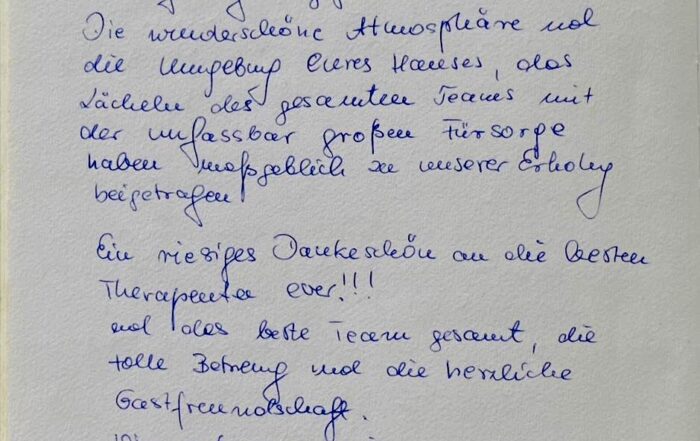 Die wunderschöne Atmosphäre und
die Umgebung Eures Hauses, das
Lächeln des gesamten Teams mit
der unfassbar großen Fürsorge
haben maßgeblich zu unserer Erholung
beigetragen!
Ein riesiges Dankeschön an die besten
Therapeuten ever!!!
und das beste Team gesamt, die
tolle Betreuung und die herzliche
Gastfreundschaft.